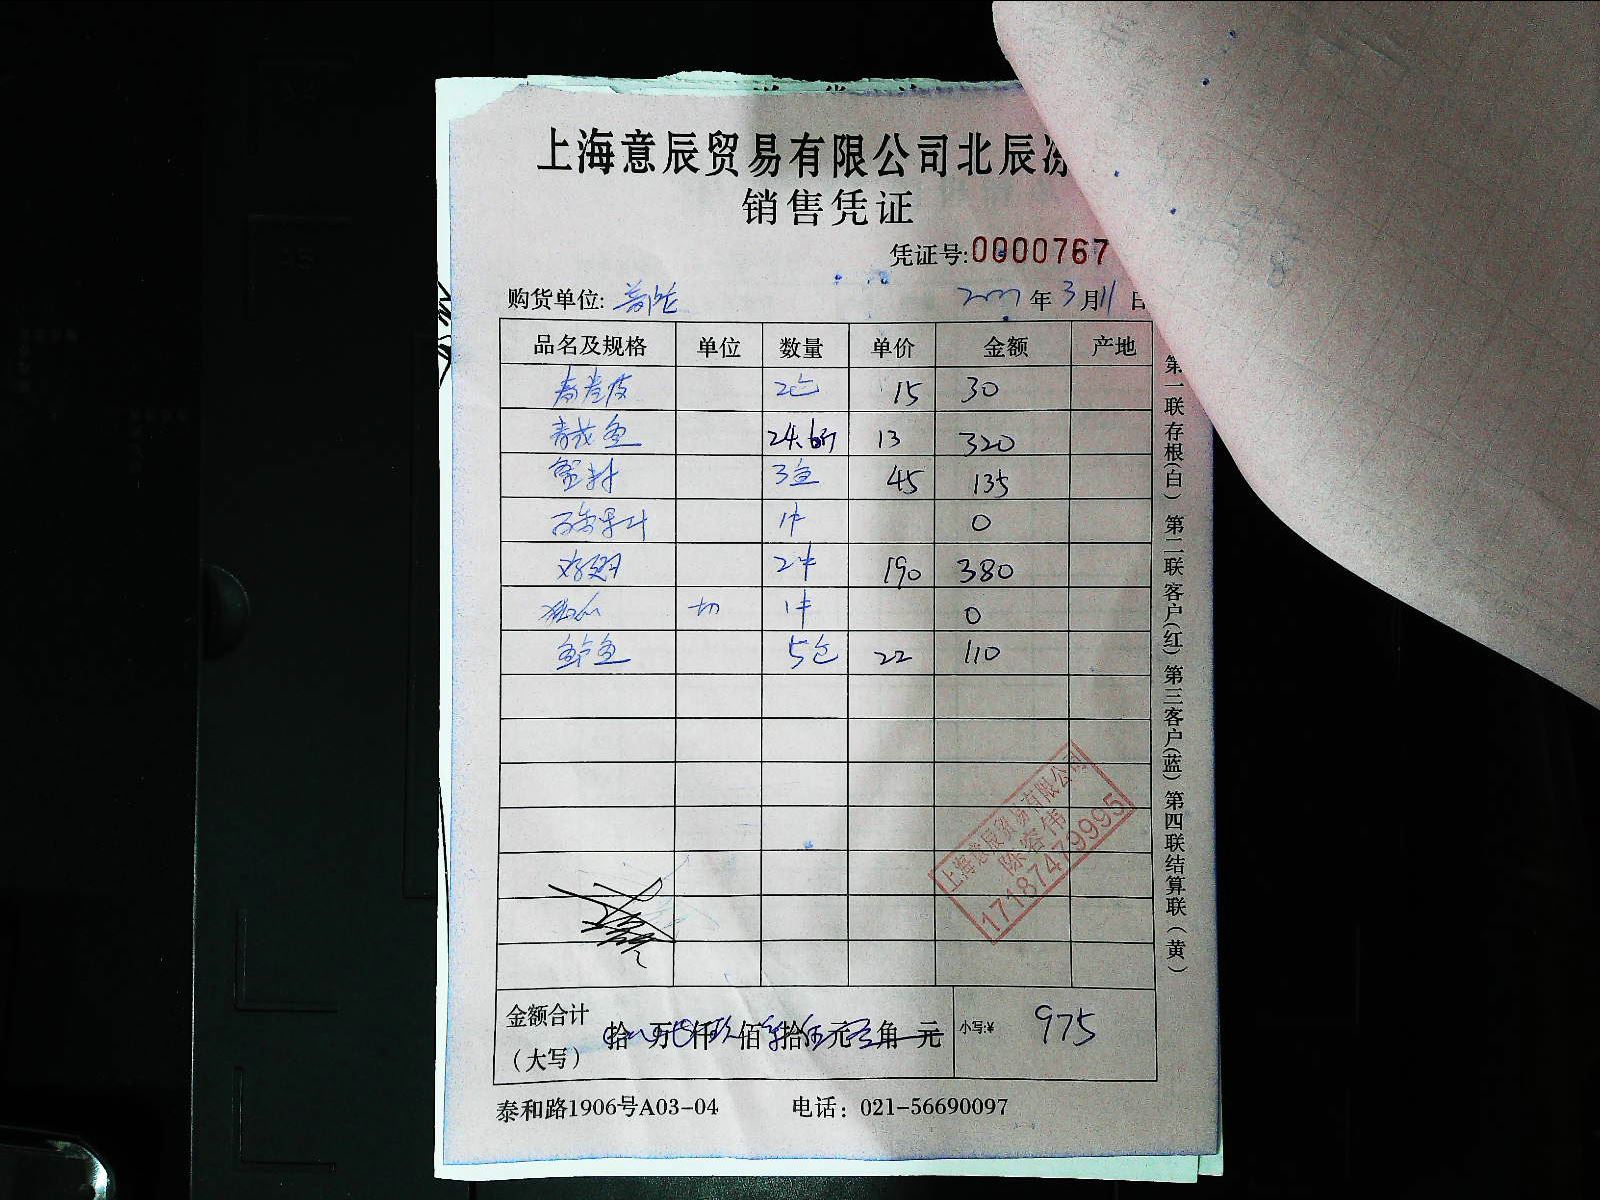 上海意辰贸易有限公司北辰冻
销售凭证
凭证号:0000767
购货单位: 普陀 年 3 月 11 日
品名及规格 单位 数量 单价 金额 产地
春卷皮 2包 15 30
青花鱼 24.6斤 13 320
蟹籽 3盒 45 135
1件 0
2件 190 380
切 1件 0
鲈鱼 5包 22 110
上海意辰贸易有限公司
陈容伟
17187479995
金额合计
(大写) 拾 万 仟 玖 佰 柒 拾 伍 元 角 元 小写:¥ 975
泰和路1906号A03-04 电话: 021-56690097
第一联存根(白) 第二联客户(红) 第三客户(蓝) 第四联结算联(黄)